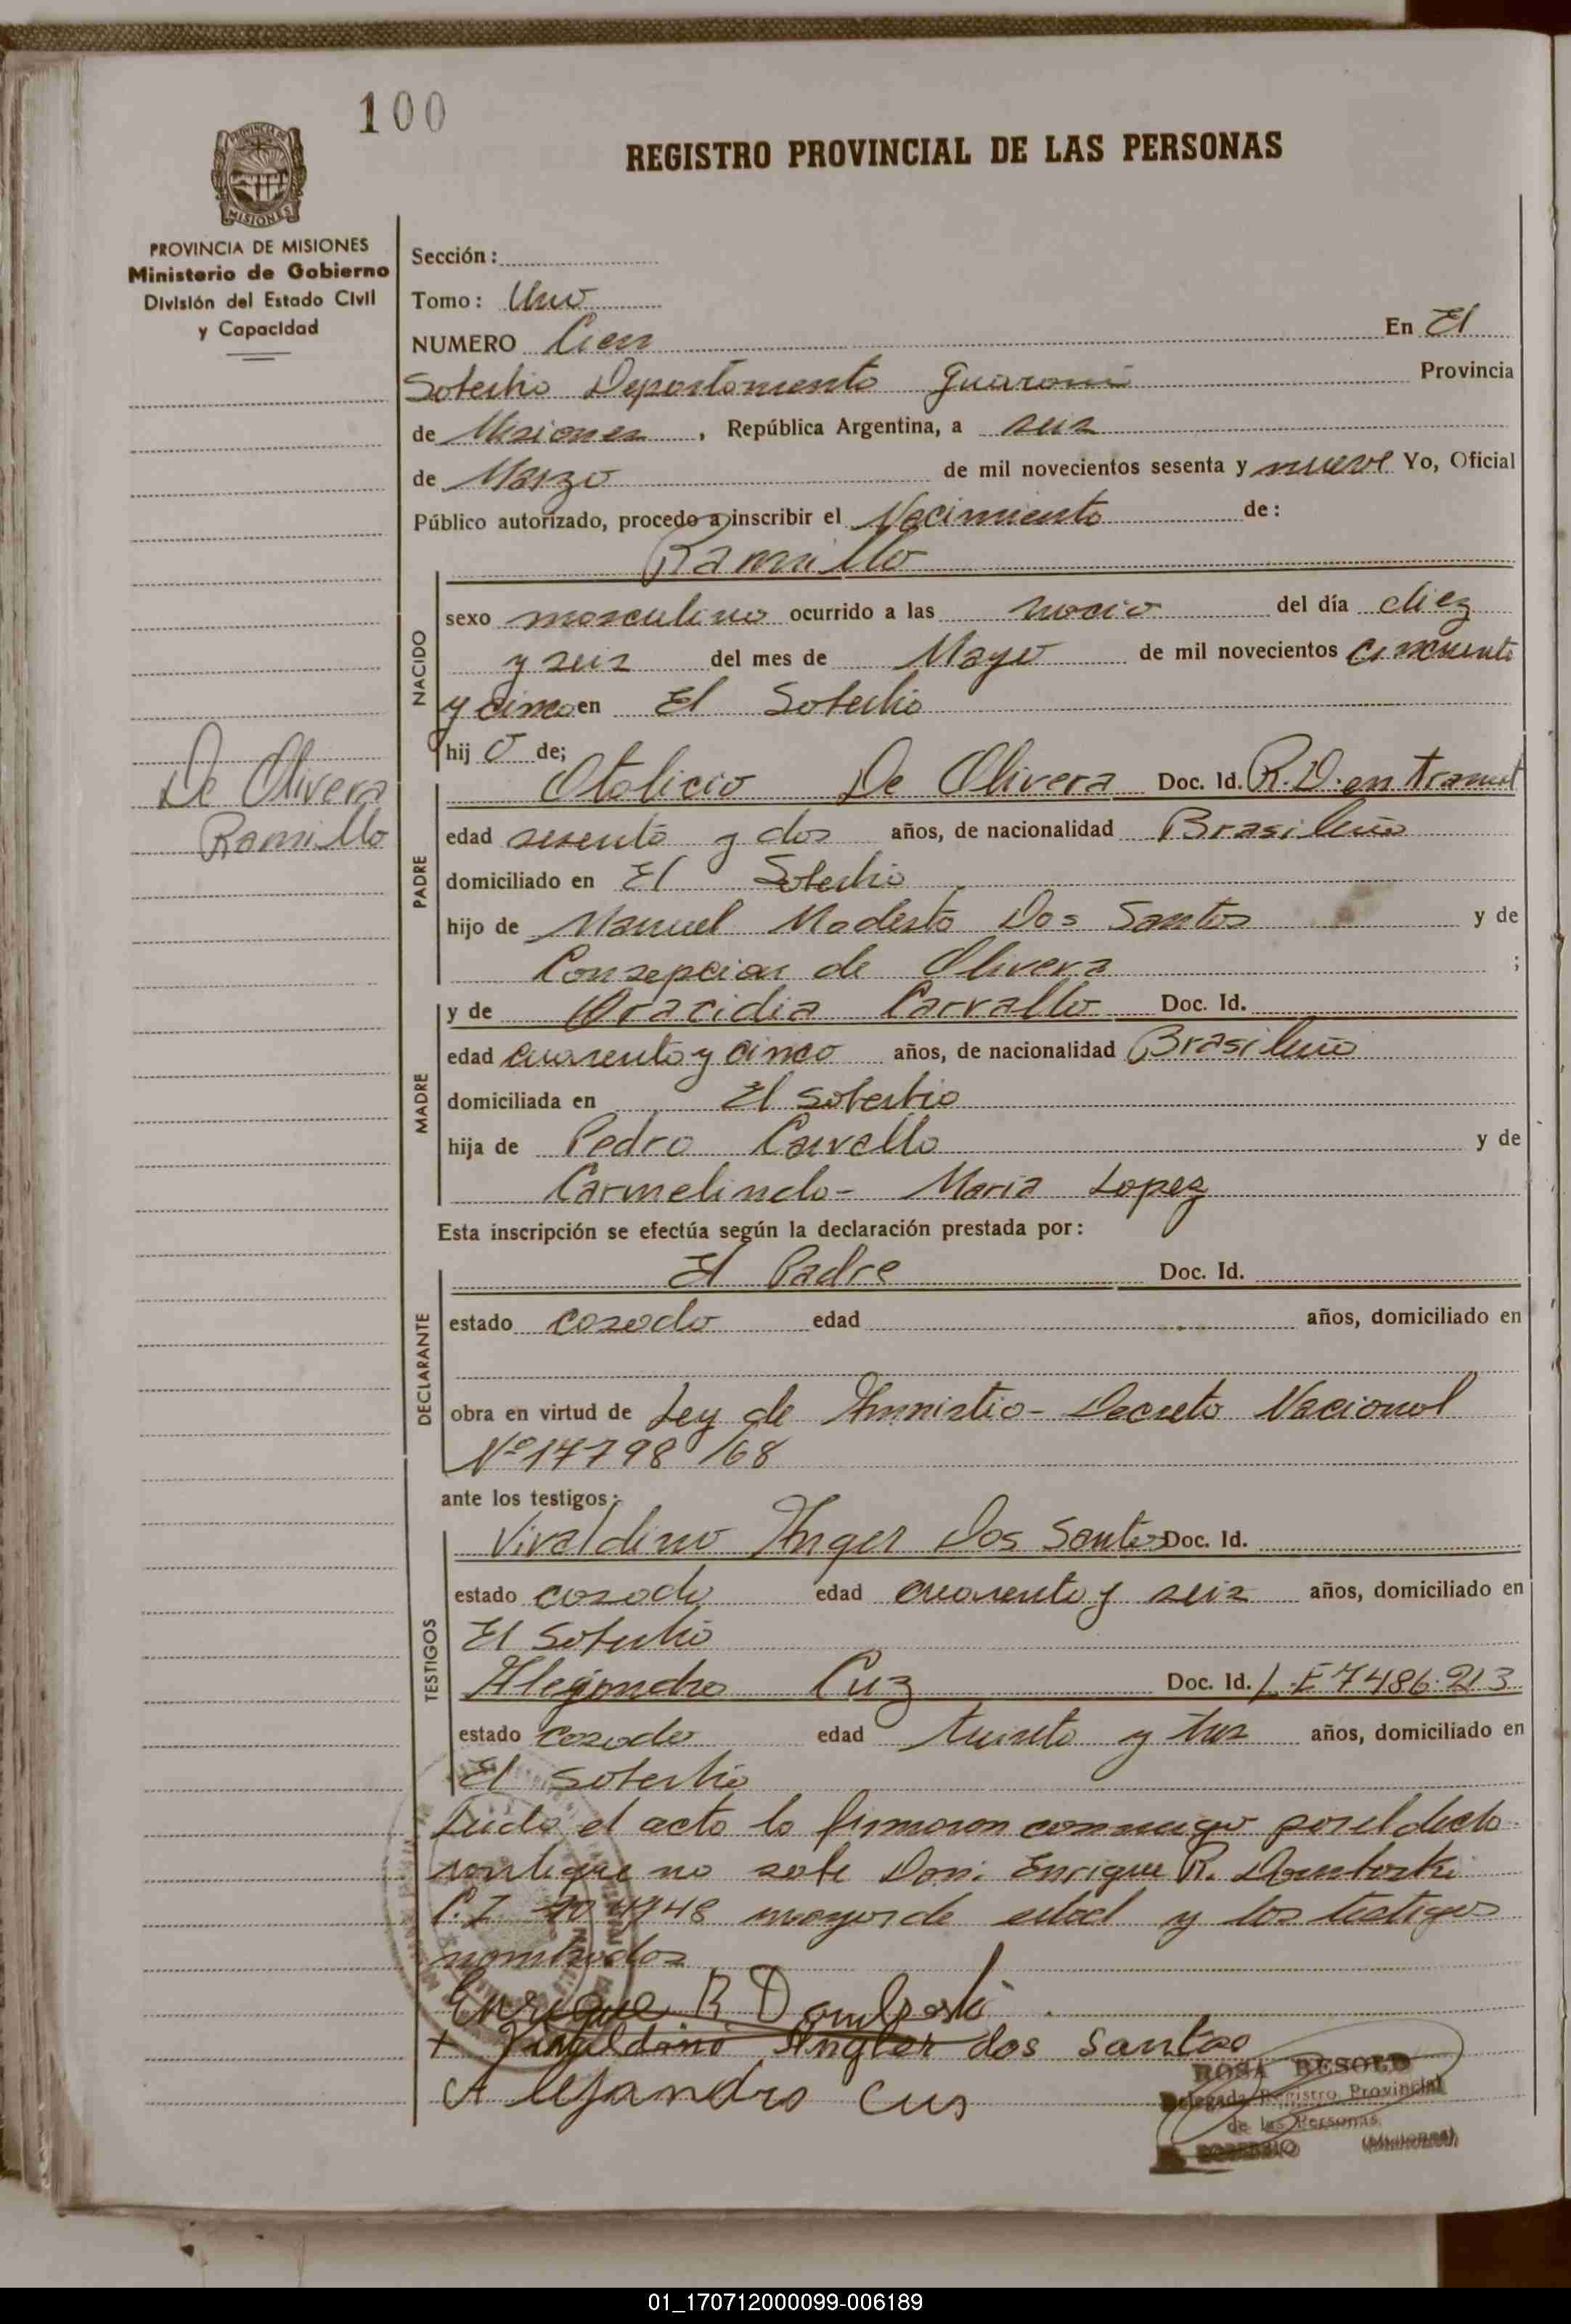 100
REGISTRO PROVINCIAL DE LAS PERSONAS
PROVINCIA DE MISIONES
MISIONES
PROVINCIA DE MISIONES
Ministerio de Gobierno
División del Estado Civil
y Capacidad
Sección:
Tomo: Uno
NUMERO Cien En El
Soberbio Departamento Guarani Provincia
de Misiones, República Argentina, a seis
de Marzo de mil novecientos sesenta y nueve Yo, Oficial
Público autorizado, procedo a inscribir el Nacimiento de:
Ramillo
NACIDO
sexo masculino ocurrido a las nacio del día diez
y seis del mes de Mayo de mil novecientos cincuenta
y cinco en El Soberbio
hijo de;
De Olivera
Ramillo
PADRE
Otalicio De Olivera Doc. Id. R.D. en tramit
edad sesenta y dos años, de nacionalidad Brasileño
domiciliado en El Soberbio
hijo de Manuel Modesto Dos Santos y de
Consepcion de Olivera ;
MADRE
y de Oracidia Carvallo Doc. Id.
edad cuarenta y cinco años, de nacionalidad Brasileño
domiciliada en El Soberbio
hija de Pedro Carvallo y de
Carmelinda- Maria Lopez
Esta inscripción se efectúa según la declaración prestada por:
DECLARANTE
El Padre Doc. Id.
estado casado edad años, domiciliado en
obra en virtud de Ley de Amnistia- Decreto Nacional
Nº 17798/68
ante los testigos:
TESTIGOS
Vivaldino Anger Dos Santos Doc. Id.
estado casado edad cuarenta y seis años, domiciliado en
El Soberbio
Alejandro Cuz Doc. Id. L.E 7486.213
estado casado edad treinta y tres años, domiciliado en
El Soberbio
Leida el acta la firmaron conmigo por el decla
rante que no sabe Don: Enrique R. Domboski
C.I. mayor de edad y los testigos
nombrados
Enrique R Domboski
+ Vivaldino Angler dos Santos
Alejandro Cus
ROSA RESOLD
Delegada Registro Provincial
de las Personas
EL SOBERBIO (Misiones)
01_170712000099-006189